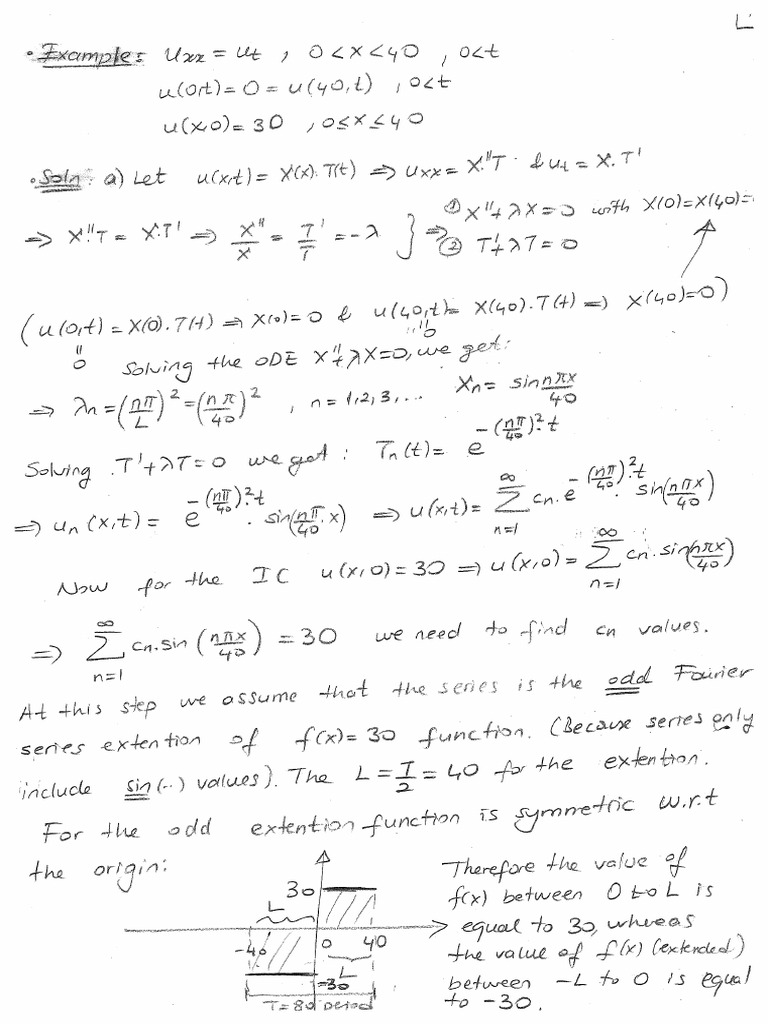 L
• Example: Uxx = Ut , 0<x<40 , 0<t
u(0,t)=0=u(40,t) , 0<t
u(x,0)=30 , 0≤x≤40
• Soln: a) Let u(x,t)= X(x).T(t) ⇒ Uxx= X''.T & ut= X.T'
⇒ X''.T = X.T' ⇒ X''/X = T'/T = -λ } ⇒ ① X''+λX=0 with X(0)=X(40)=
② T'+λT=0
(u(0,t)=X(0).T(t) ⇒ X(0)=0 & u(40,t)= X(40).T(t) ⇒ X(40)=0)
0 0
Solving the ODE X''+λX=0, we get:
⇒ λn=(nπ/L)^2=(nπ/40)^2 , n=1,2,3,... Xn= sin nπx/40
Solving T'+λT=0 we get: Tn(t)= e^-(nπ/40)^2.t
⇒ un(x,t)= e^-(nπ/40)^2.t . sin(nπ/40.x) ⇒ u(x,t)= ∑_{n=1}^∞ cn.e^-(nπ/40)^2.t . sin(nπx/40)
Now for the IC u(x,0)=30 ⇒ u(x,0)= ∑_{n=1}^∞ cn.sin(nπx/40)
⇒ ∑_{n=1}^∞ cn.sin(nπx/40) = 30 we need to find cn values.
At this step we assume that the series is the odd Fourier
series extention of f(x)=30 function. (Because series only
include sin(..) values). The L = T/2 = 40 for the extention.
For the odd extention function is symmetric w.r.t
the origin:
30
L
-40 0 40
L
-30
T=80 period
Therefore the value of
f(x) between 0 to L is
equal to 30, whereas
the value of f(x) (extended)
between -L to 0 is equal
to -30.